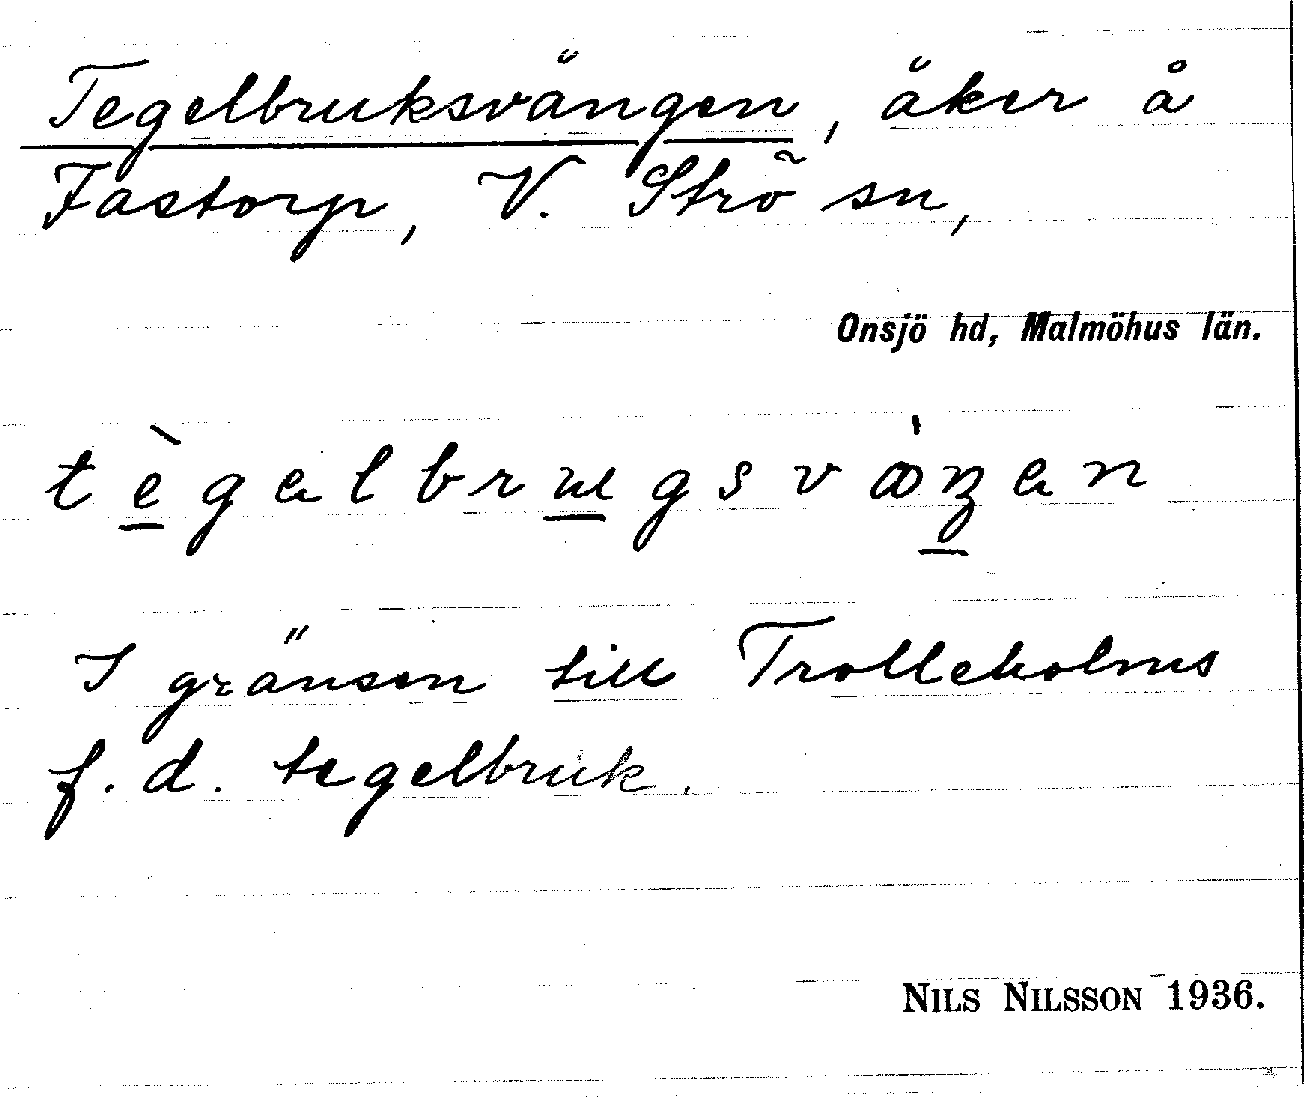 Tegelbruksvängen, åker å
Fastorp, V. Strö sn,
Onsjö hd, Malmöhus län.
I gränsen till Trolleholms
f. d. tegelbruk.
NILS NILSSON 1936.